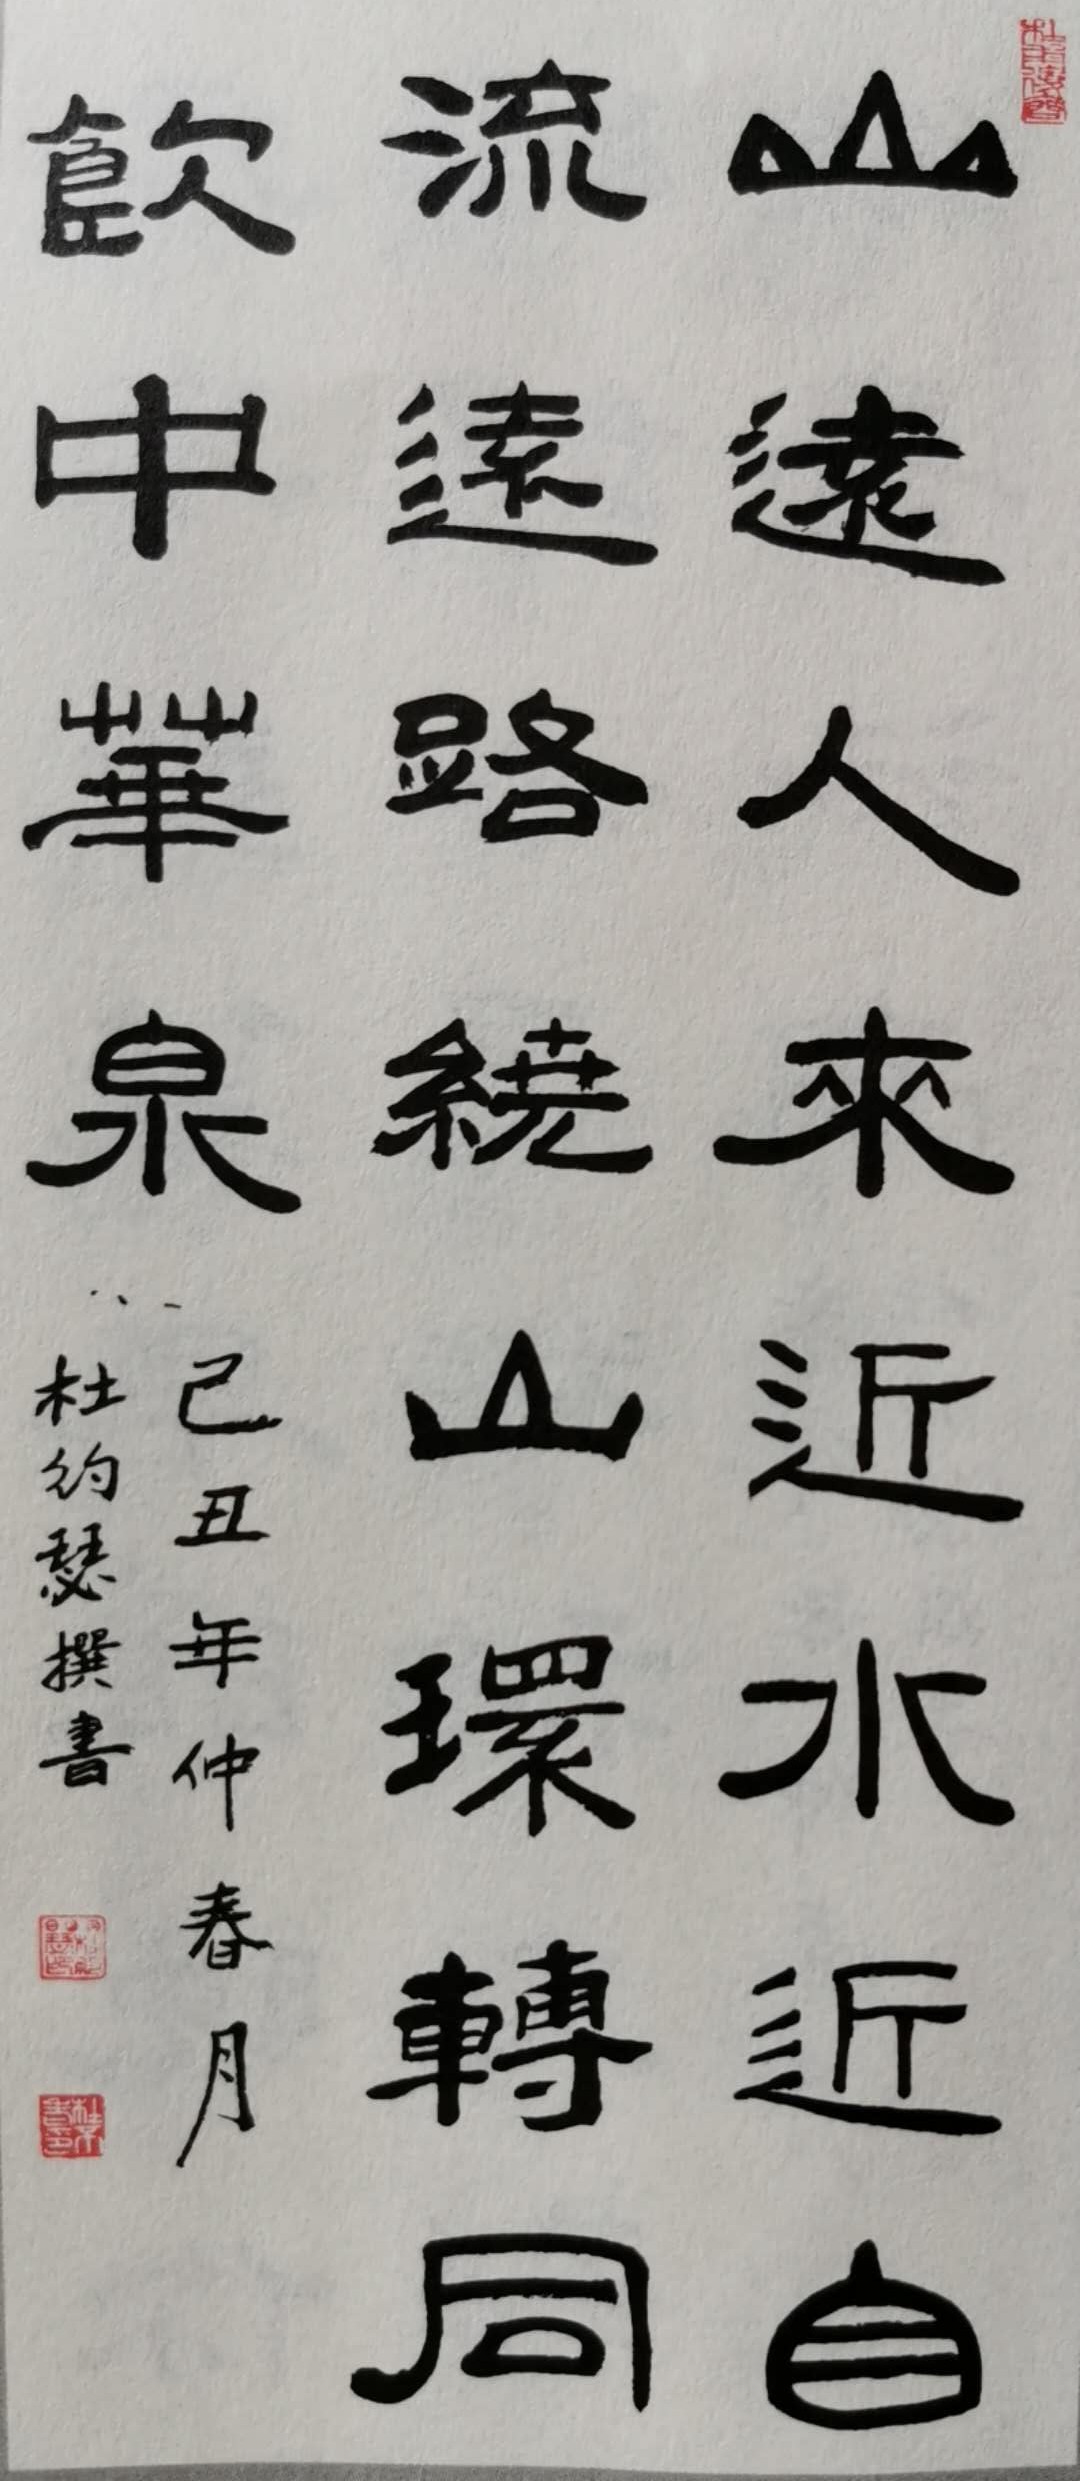 山遠人來近水近自
流遠路繞山環轉同
飲中華泉
己丑年仲春月
杜約瑟撰書